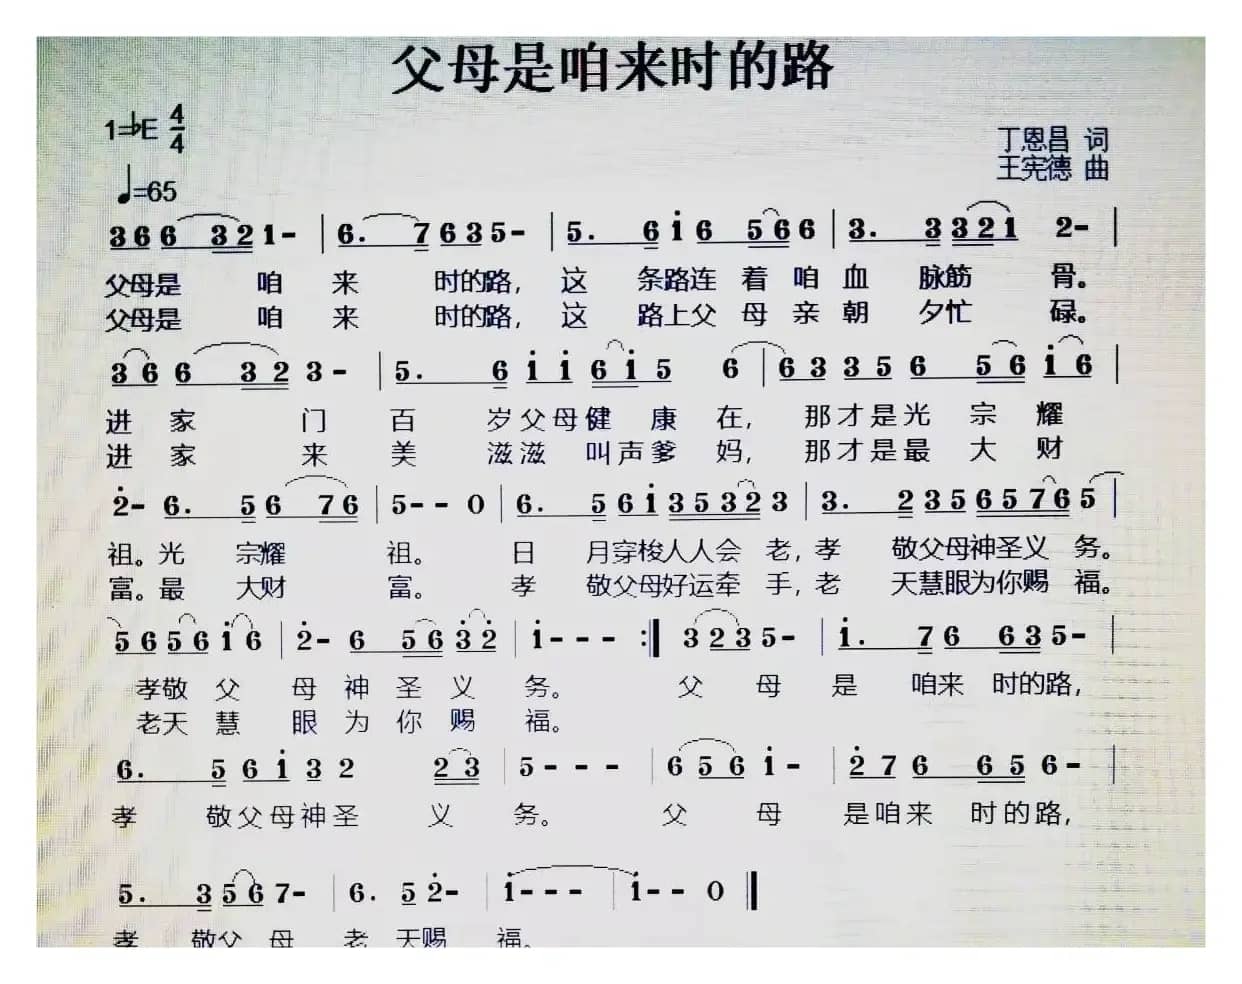 父母是咱来时的路
1=♭E 4/4
丁恩昌 词
♩=65
王宪德 曲
3 6 6 3 2 1 - | 6. 7 6 3 5 - | 5. 6 i 6 5 6 6 | 3. 3 3 2 1 2 - |
父母是 咱 来 时的路，这 条路连 着 咱 血 脉筋 骨。
父母是 咱 来 时的路，这 路上父 母 亲 朝 夕忙 碌。
3 6 6 3 2 3 - | 5. 6 i i 6 i 5 6 | 6 3 3 5 6 5 6 i 6 |
进 家 门 百 岁父母健 康 在，那才是光 宗 耀
进 家 来 美 滋滋 叫声爹 妈，那才是最 大 财
2 - 6. 5 6 7 6 | 5 - - 0 | 6. 5 6 i 3 5 3 2 3 | 3. 2 3 5 6 5 7 6 5 |
祖。光 宗耀 祖。 日 月穿梭人人会 老，孝 敬父母神圣义 务。
富。最 大财 富。 孝 敬父母好运牵 手，老 天慧眼为你赐 福。
5 6 5 6 i 6 | 2 - 6 5 6 3 2 | i - - - :| 3 2 3 5 - | i. 7 6 6 3 5 - |
孝敬 父 母 神 圣 义 务。 父 母 是 咱来 时的路，
老天 慧 眼 为 你 赐 福。
6. 5 6 i 3 2 2 3 | 5 - - - | 6 5 6 i - | 2 7 6 6 5 6 - |
孝 敬父母神圣 义 务。 父 母 是咱来 时的路，
5. 3 5 6 7 - | 6. 5 2 - | i - - - | i - - 0 ‖
孝 敬父 母 老 天赐 福。